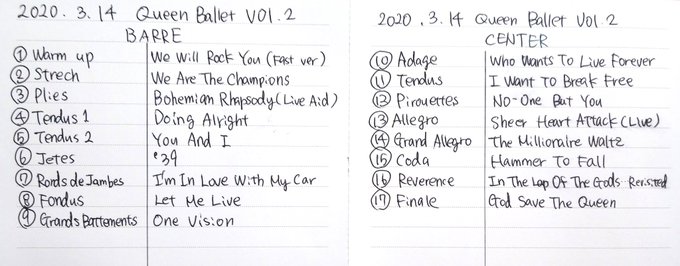 2020. 3. 14 Queen Ballet VOl. 2
BARRE
① Warm up We Will Rock You (Fast ver)
② Strech We Are The Champions
③ Plies Bohemian Rhapsody (Live Aid)
④ Tendus 1 Doing Alright
⑤ Tendus 2 You And I
⑥ Jetes '39
⑦ Ronds de Jambes I'm In Love With My Car
⑧ Fondus Let Me Live
⑨ Grands Battements One Vision
2020. 3. 14 Queen Ballet Vol 2
CENTER
⑩ Adage Who Wants To Live Forever
⑪ Tendus I Want To Break Free
⑫ Pirouettes No-One But You
⑬ Allegro Sheer Heart Attack (Live)
⑭ Grand Allegro The Millionaire Waltz
⑮ Coda Hammer To Fall
⑯ Reverence In The Lap Of The Gods Revisited
⑰ Finale God Save The Queen